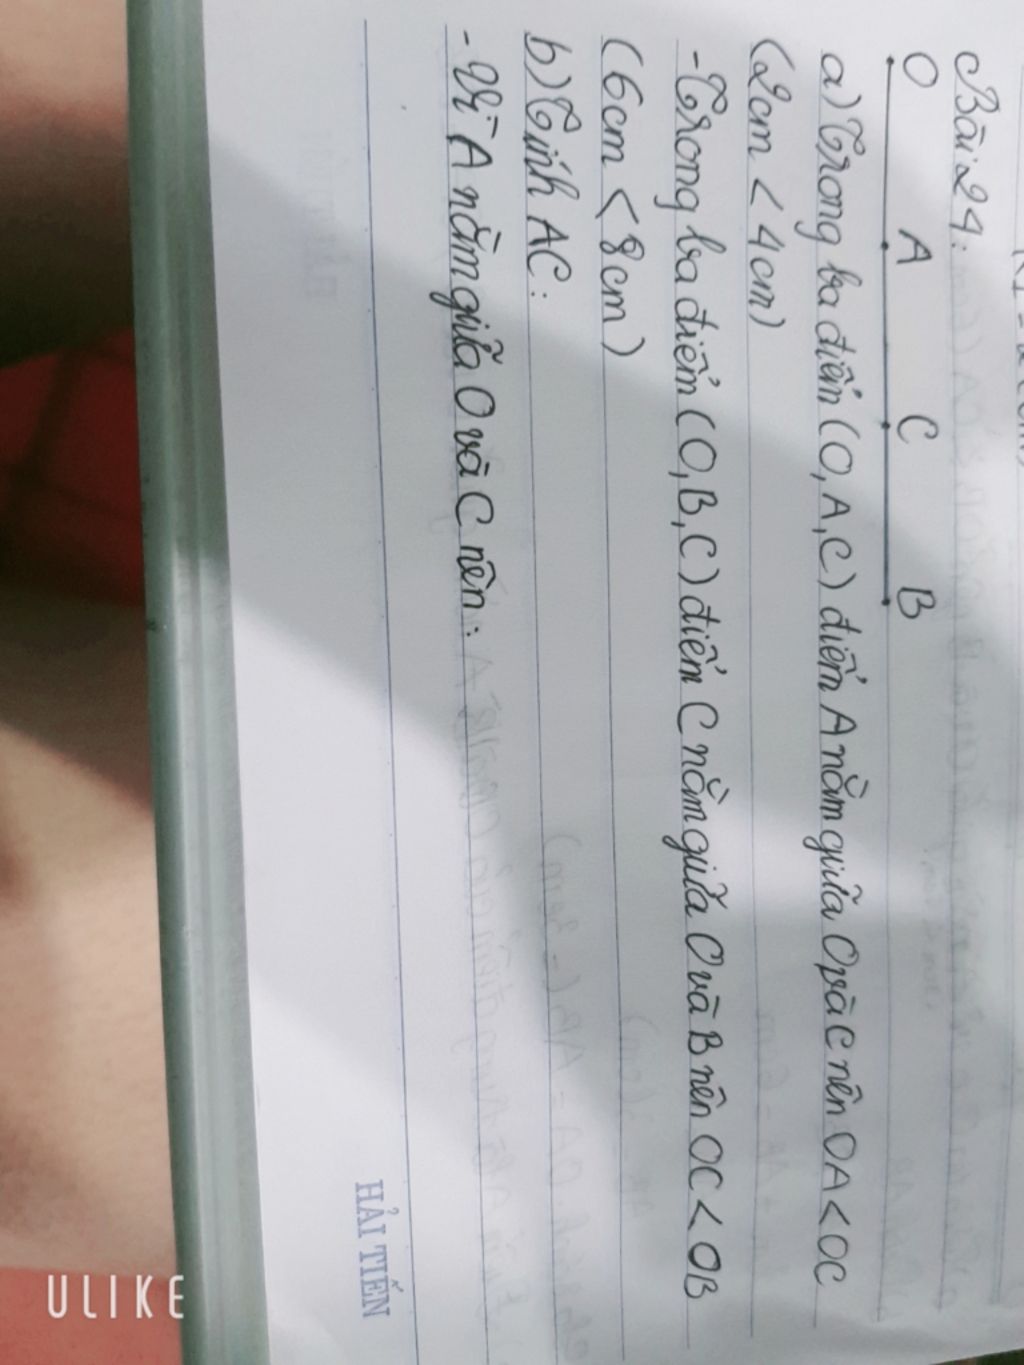 Bài 24:
O A C B
a) Trong ba điểm (O, A, C) điểm A nằm giữa O và C nên OA < OC
(2cm < 4cm)
- Trong ba điểm (O, B, C) điểm C nằm giữa O và B nên OC < OB
(6cm < 8cm)
b) Tính AC:
- Vì A nằm giữa O và C nên:
HẢI TIẾN
ULIKE